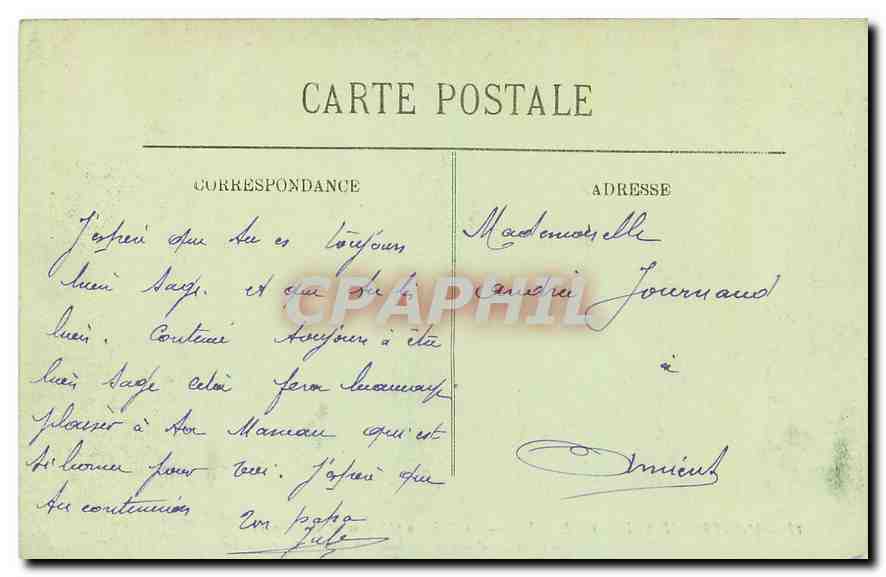 CARTE POSTALE
CORRESPONDANCE
ADRESSE
J'espère que tu es toujours
bien sage. et que tu lis
bien. Continue toujours à être
bien sage cela fera beaucoup
plaisir à ta Maman qui est
si bonne pour toi. J'espère que
tu continueras
Ton papa
Jules
Mademoiselle
Andrée Journaud
à
CPAPHIL